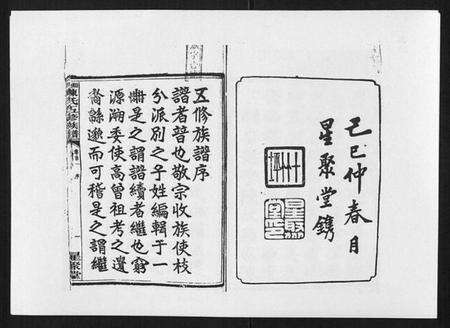 己巳仲春月
星聚堂鐫
星聚堂
五修族譜序
譜者普也敬宗收族使枝
分派別之子姓編輯于一
之謂譜續者繼也窮
源溯委使高曾祖考之遺
裔緜邈而可稽是之謂繼
陳氏五修族譜
序
一
星聚堂